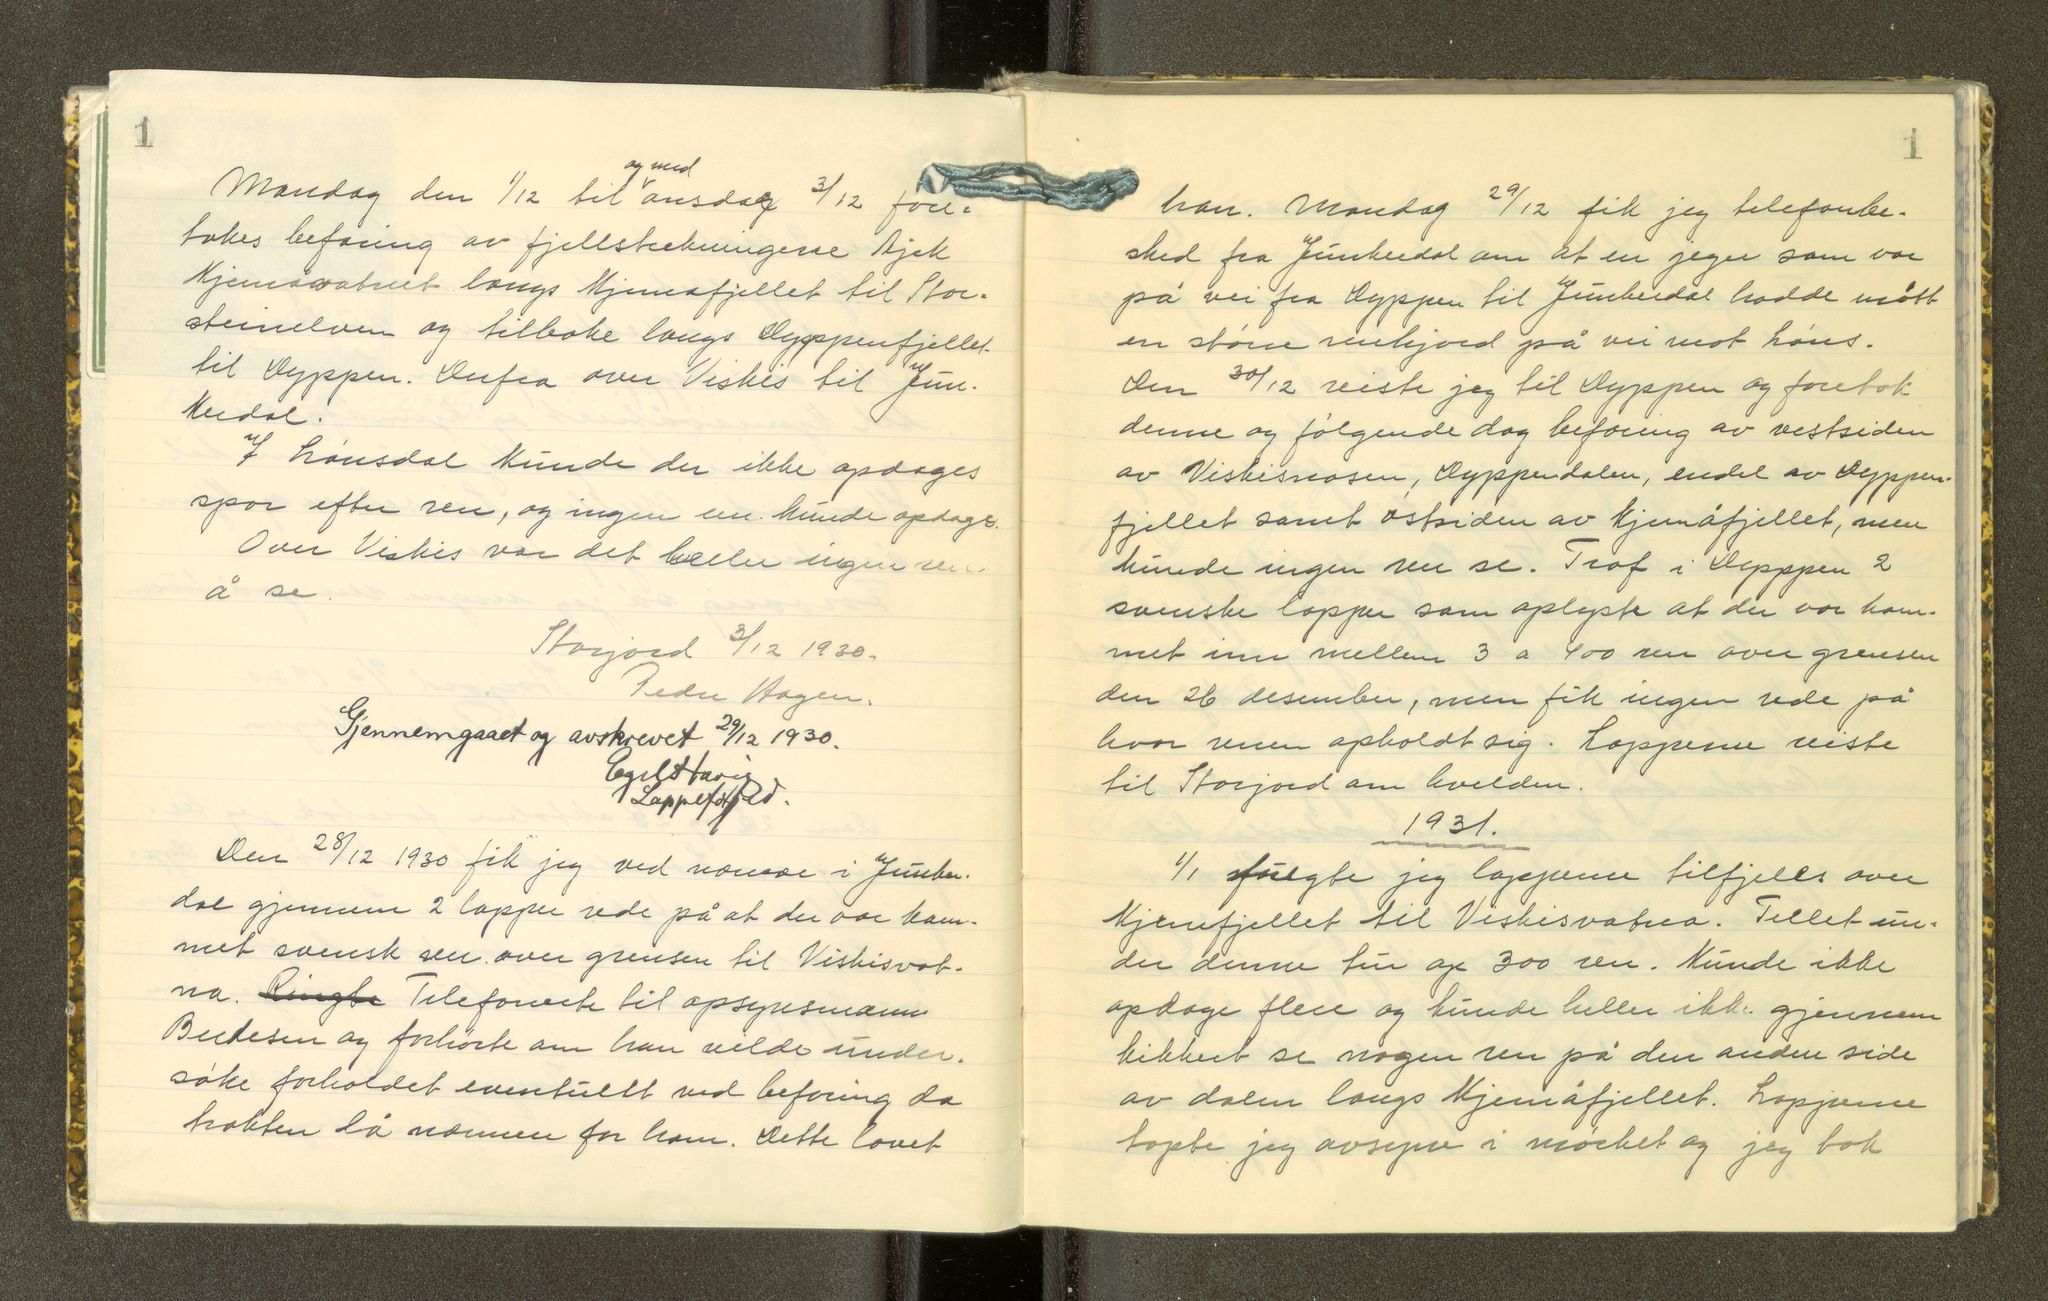 1
Mandag den 1/12 til og med onsdag 3/12 fore-
tokes befaring av fjellstrekningene Ajek
Kjemåvatnet langs Kjemåfjellet til Stor-
steinelven og tilbake langs Dyppenfjellet
til Dyppen. Derfra over Viskis til Jun-
kerdal.
I Lønsdal kunde der ikke opdages
spor efter ren, og ingen ren kunde opdages.
Over Viskis var det heller ingen ren
å se.
Storjord 3/12 1930.
Peder Hagen.
Gjennemgaaet og avskrevet 29/12 1930.
Lappefogd.
Den 28/12 1930 fik jeg ved nærvær i Junker-
dal gjennem 2 lapper rede på at der var kom-
met svensk ren over grensen til Viskisvat-
na. Ringte Telefonerte til opsynsmann
Berntsen og forhørte om han vilde under-
søke forholdet eventuellt ved befaring da
trakten lå nærmere for ham. Dette lovet
1
han. Mandag 29/12 fik jeg telefonbe-
sked fra Junkerdal om at en jeger som var
på vei fra Dyppen til Junkerdal hadde møtt
en større renhjord på vei mot Løns.
Den 30/12 reiste jeg til Dyppen og foretok
denne og følgende dag befaring av vestsiden
av Viskismosen, Dyppendalen, endel av Dyppen-
fjellet samt østsiden av Kjemåfjellet, men
kunde ingen ren se. Traf i Dyppen 2
svenske lapper som oplyste at der var kom-
met inn mellem 3 a 400 ren over grensen
den 26 desember, men fik ingen rede på
hvor renen opholdt sig. Lapperne reiste
til Storjord om kvelden.
1931.
1/1 fulgte jeg lapperne tilfjells over
Kjemåfjellet til Viskisvatna. Tellet un-
der denne tur op 300 ren. Kunde ikke
opdage flere og kunde heller ikke gjennem
kikkert se nogen ren på den anden side
av dalen langs Kjemåfjellet. Lapperne
tapte jeg avsyne i mørket og jeg tok